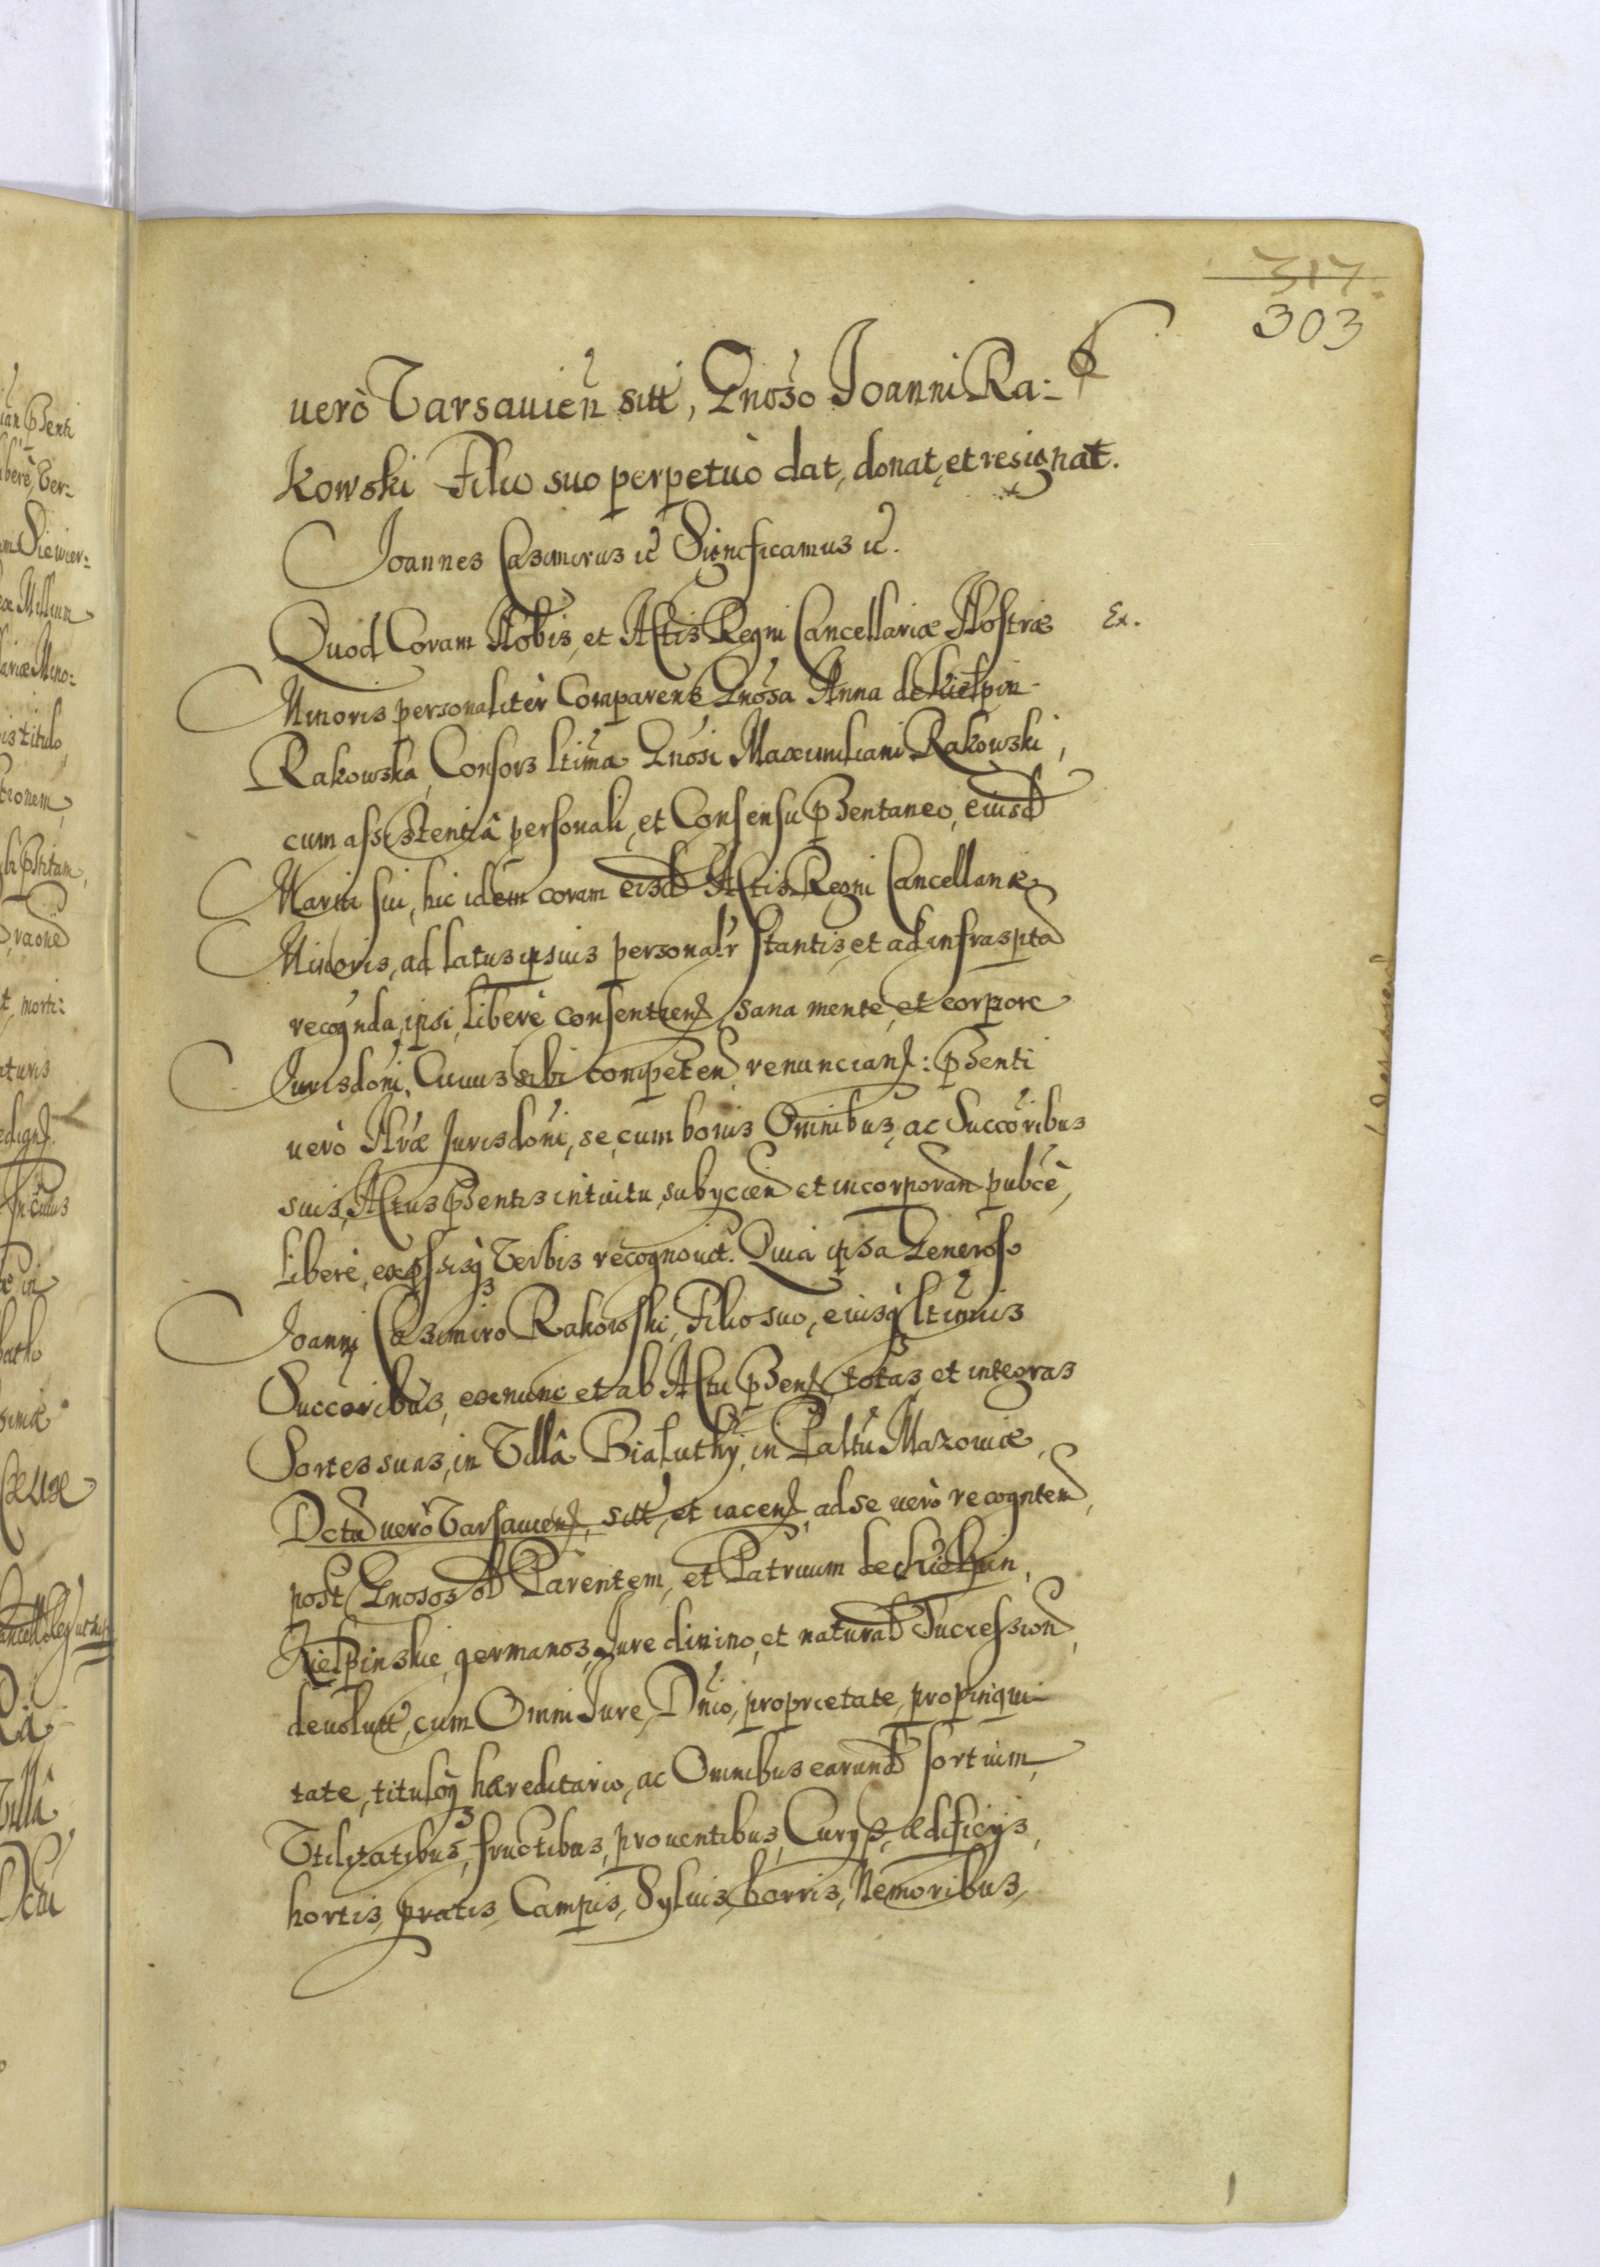 317.
303
uerò Varsauien sitt, Gnoso Joanni Ra-
kowski Filio suo perpetuò dat, donat, et resignat.
Joannes Casimirus ic Significamus ic.
Quod Coram Nobis, et Actis Regni Cancellariæ Nostræ
Ex.
Minoris personalitèr Comparens Gnosa Anna de Kiełpin
Rakowska, Consors ltima Gnosi Maximiliani Rakowski,
cum assistentiâ personali, et Consensu pñsentaneo, eiusd
Mariti sui, hic idem coram eisd Actis Regni Cancellariæ
Minoris, ad latus ipsius personalr stantis, et ad infrascpta
recognda, ipsi, liberè consentien, sana mente, et corpore
Jurisdoni, Cuiuis sibi competen renuncian: pñsenti
uerò Nræ Jurisdoni, se, cum bonis Omnibus, ac Succoribus
suis, Actus pñsentis intuitu, subycien et incorporan pubcè,
liberè, expssisq Verbis recognouit. Quia ipsa Generoso
Joanni Casimiro Rakowski, Filio suo, eiusq ltimis
Succoribus, ex nunc et ab Actu pñsen, totas et integras
Sortes suas, in Villâ Białuthy, in Paltu Mazouiæ,
Dctu uerò Varsauien, sitt, et iacen, ad se uerò recognten,
post Gnosos olim Parentem, et Patruum de Kiełpin,
Kiełpinskie, germanos, Jure diuino, et naturali Succession,
deuolutt, cum Omni Jure, Dnio, proprietate, propinqui-
tate, tituloq hæreditario, ac Omnibus earund sortium,
Vtilitatibus, fructibus, prouentibus, Curys, ædificys,
hortis, pratis, Campis, Syluis, borris, Nemoribus,